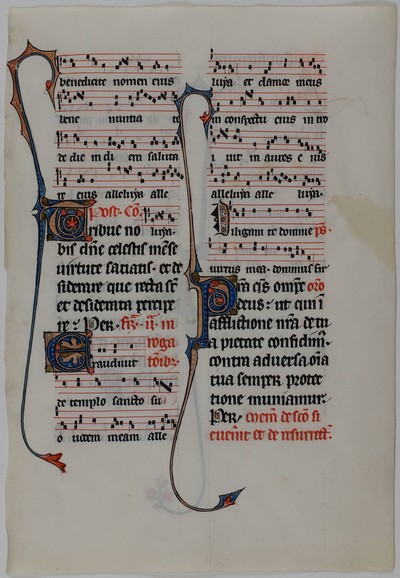 benedicite nomen eius
bene nuntia te
de die in di em saluta
re eius alleluya alle
Post. cō.
Tribue no luya.
bis dñe celestis mēse
uirtute saciatis. et de
siderare que recta st̄
et desiderata percipe
re. Per. fr̄. ii. in
roga
Exaudiuit tōibz.
de templo sancto su
o uocem meam alle
luya et clamor meus
in conspectu eius in tro
i uit in aures e ius
alleluya alle luya.
Diligam te domine ps̄
uirtus mea. dominus fir
Pr̄a qs̄ omps̄ oro
deus: ut qui ī
afflictione nr̄a de tu
a pietate confidim̄.
contra aduersa oīa
tua semper protec
tione muniamur.
Per. de sc̄o
et de resurrect̄.